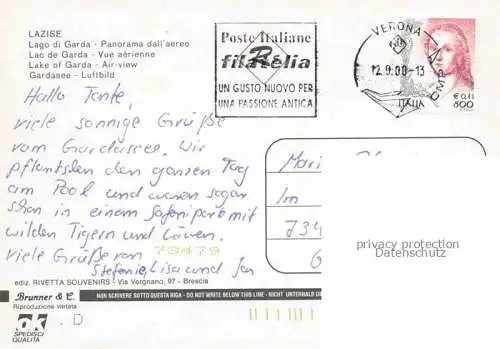 LAZISE
Lago di Garda - Panorama dall'aereo
Lac de Garda - Vue aérienne
Lake of Garda - Air-view
Gardasee - Luftbild
Poste Italiane
filatelia
UN GUSTO NUOVO PER
UNA PASSIONE ANTICA
VERONA
12.9.00-13
€ 0,41
800
ITALIA
Hallo Tante,
viele sonnige Grüße
vom Gardasee. Wir
pflantslen den ganzen Tag
am Pool und waren sogar
schon in einem Safaripark mit
wilden Tigern und Löwen.
viele Grüße von
Stefanie, Lisa und Jan
73479
Im
734
privacy protection
Datenschutz
ediz. RIVETTA SOUVENIRS - Via Vorgnano, 97 - Brescia
Brunner & C.
Riproduzione vietata
NON SCRIVERE SOTTO QUESTA RIGA - DO NOT WRITE BELOW THIS LINE - NICHT UNTERHALB
OK
SPEDISCI
QUALITÀ
D